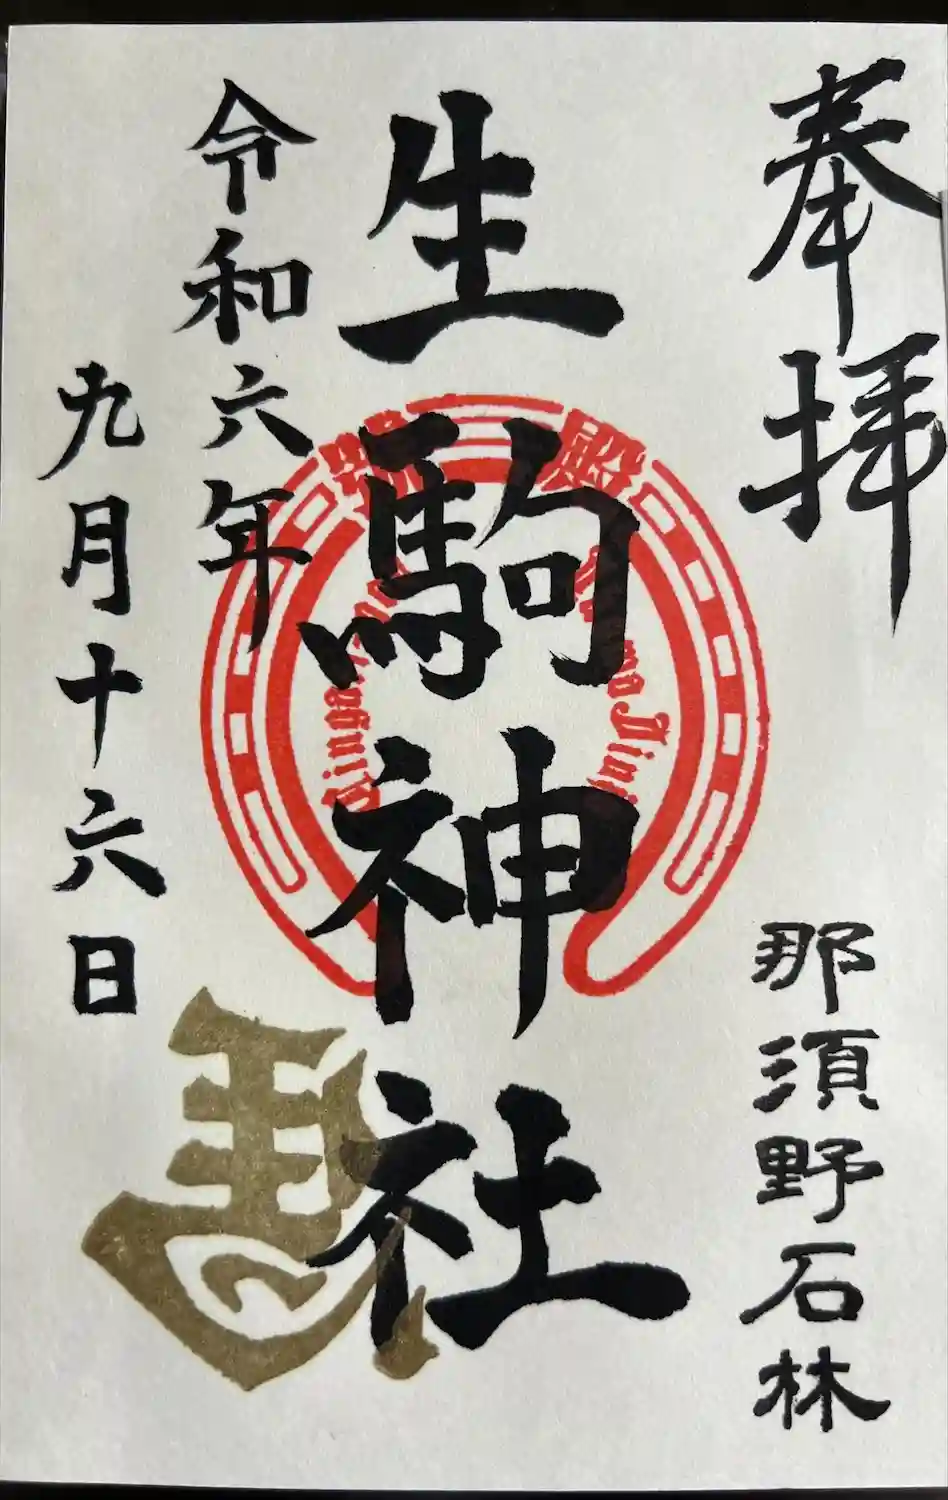 奉拝
那須野石林
生駒神社
令和六年
九月十六日